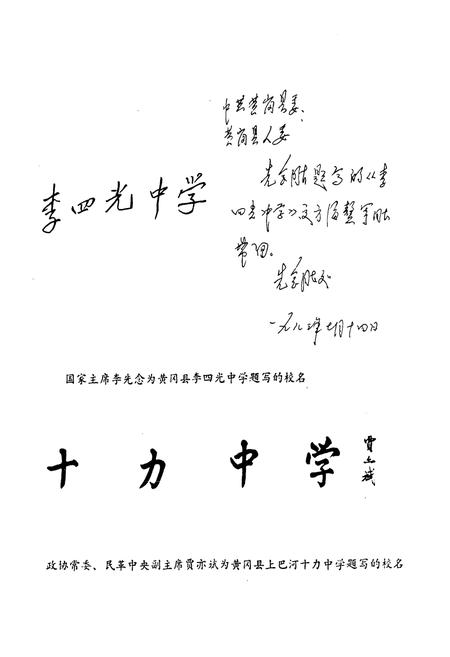 李四光中学
中共黄岗县委、
黄岗县人委
题写的《李
四光中学》
一九八三年七月十四日
国家主席李先念为黄冈县李四光中学题写的校名
十力中学
贾亦斌
政协常委、民革中央副主席贾亦斌为黄冈县上巴河十力中学题写的校名